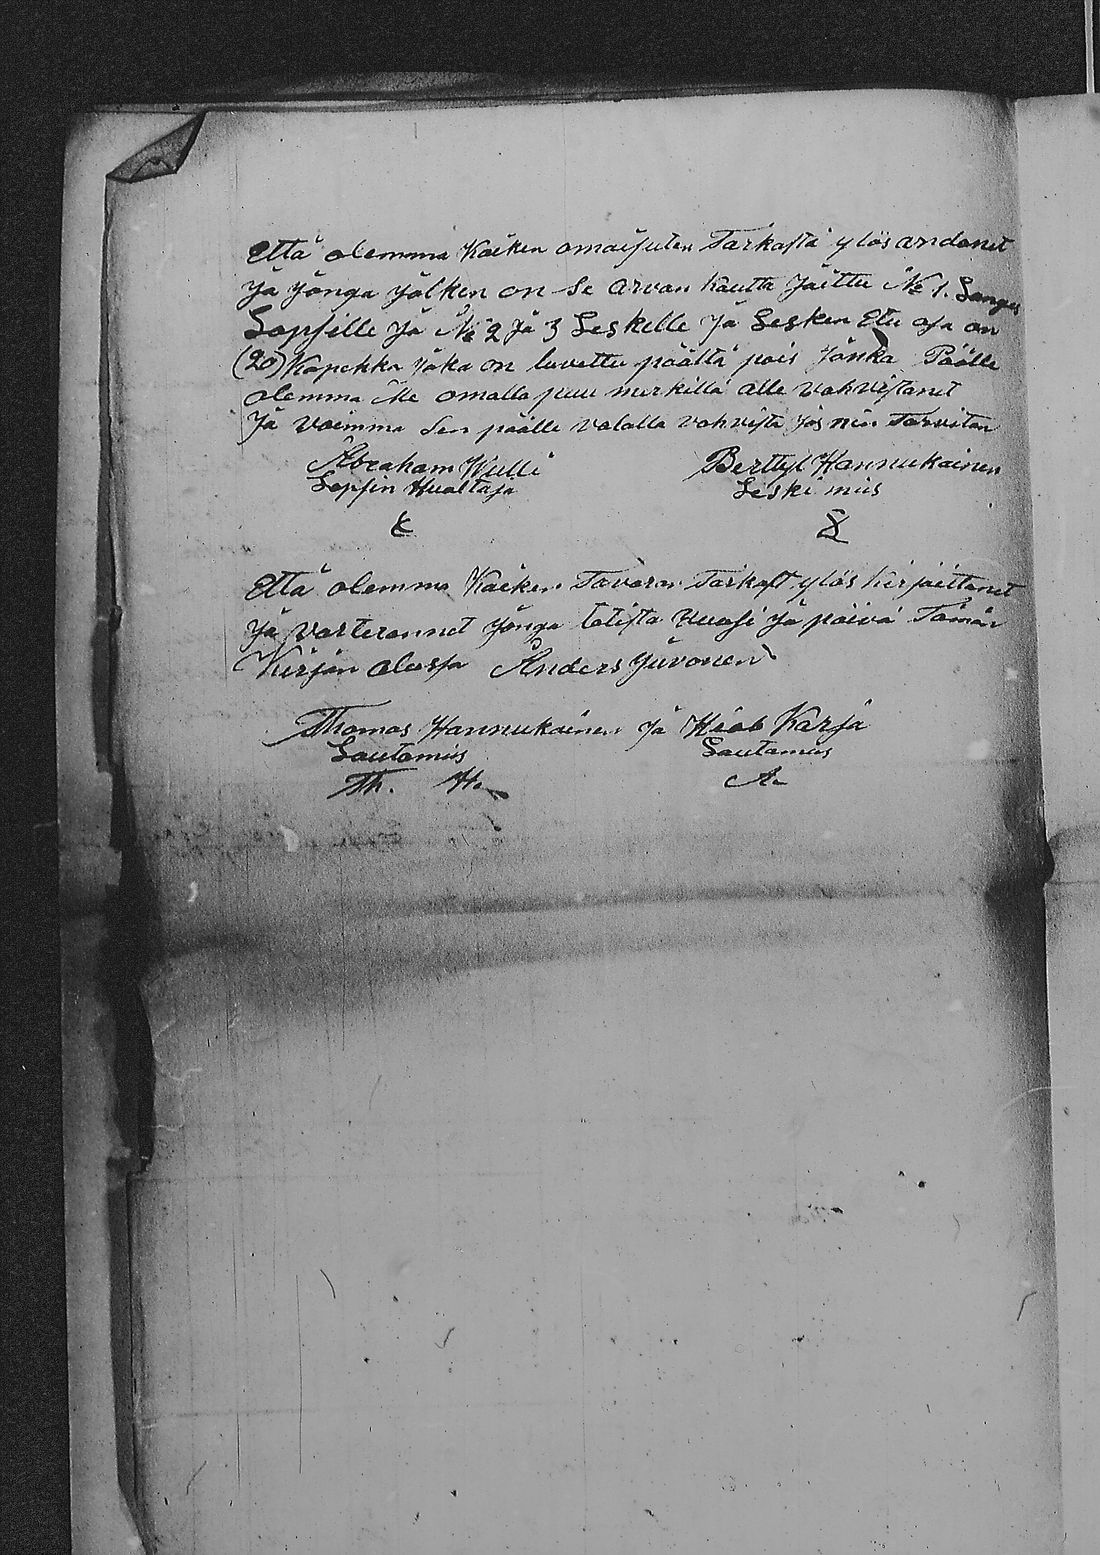 Että olemma Kaiken omaisuten Tarkasta ylös andanet
Ja Jonga Jälken on se arvan kautta Jaittu № 1.
Lapsille Ja № 2 Ja 3 Leskelle Ja Lesken Etu osa on
(20) Kopekka Joka on luvettu päältä pois Jonka Päälle
olemma Me omalla puu merkillä alle vahvistanet
Ja Voimma Sen päälle valalla vahvista Jos niin Tarvitan
Abraham Wulli Berttyl Hannukainen
Lapsin Hualtaja Leski mies
Että olemma Kaiken Tavaran Tarkast ylös kirjoittanet
Ja Varterannet Jonga totista Vuosi Ja päivä Tämän
Kirjan olessa Anders Juvonen
Thomas Hannukainen Ja Hiob Karja
Lautamies Lautamies
Th. H. A.